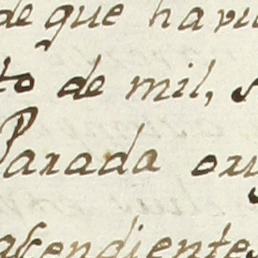 de que havu
to de mil, s
Parada ory
ascendientes